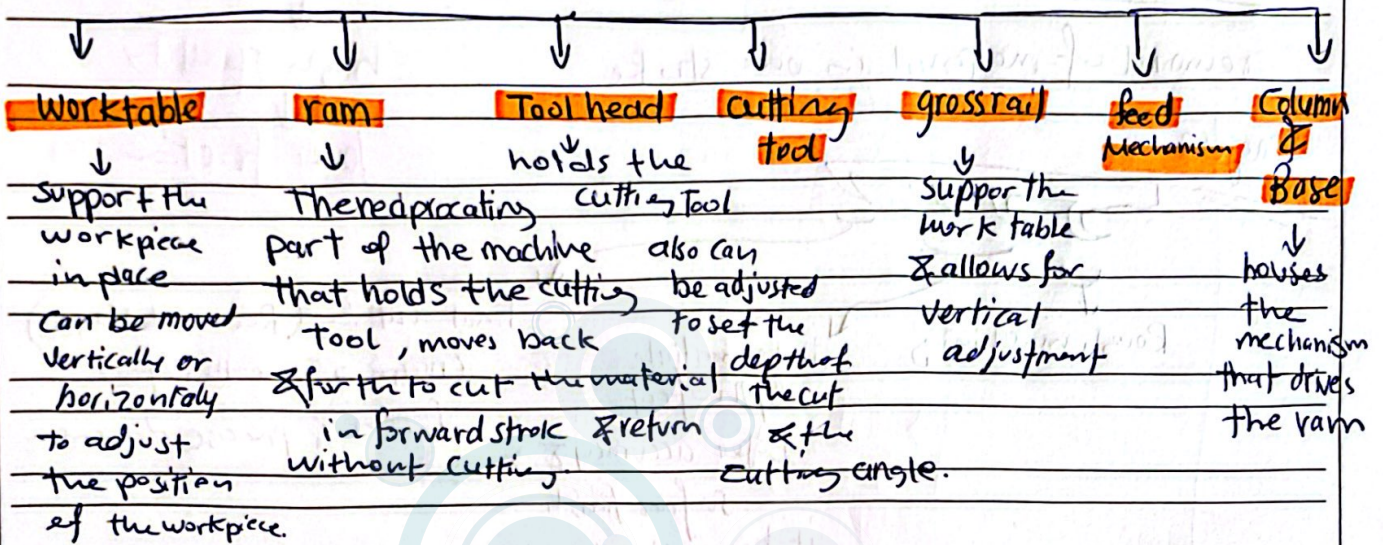 worktable
support the
workpiece
in place
can be moved
vertically or
horizontaly
to adjust
the position
of the workpiece.
ram
The reciprocating
part of the machine
that holds the cutting
Tool, moves back
& forth to cut the material
in forward strok & return
without cutting.
Tool head
holds the
cutting Tool
also can
be adjusted
to set the
depth of
the cut
& the
cutting angle.
cutting
tool
grossrail
support the
work table
& allows for
vertical
adjustment
feed
Mechanism
Column
&
Base
houses
the
mechanism
that drives
the ram